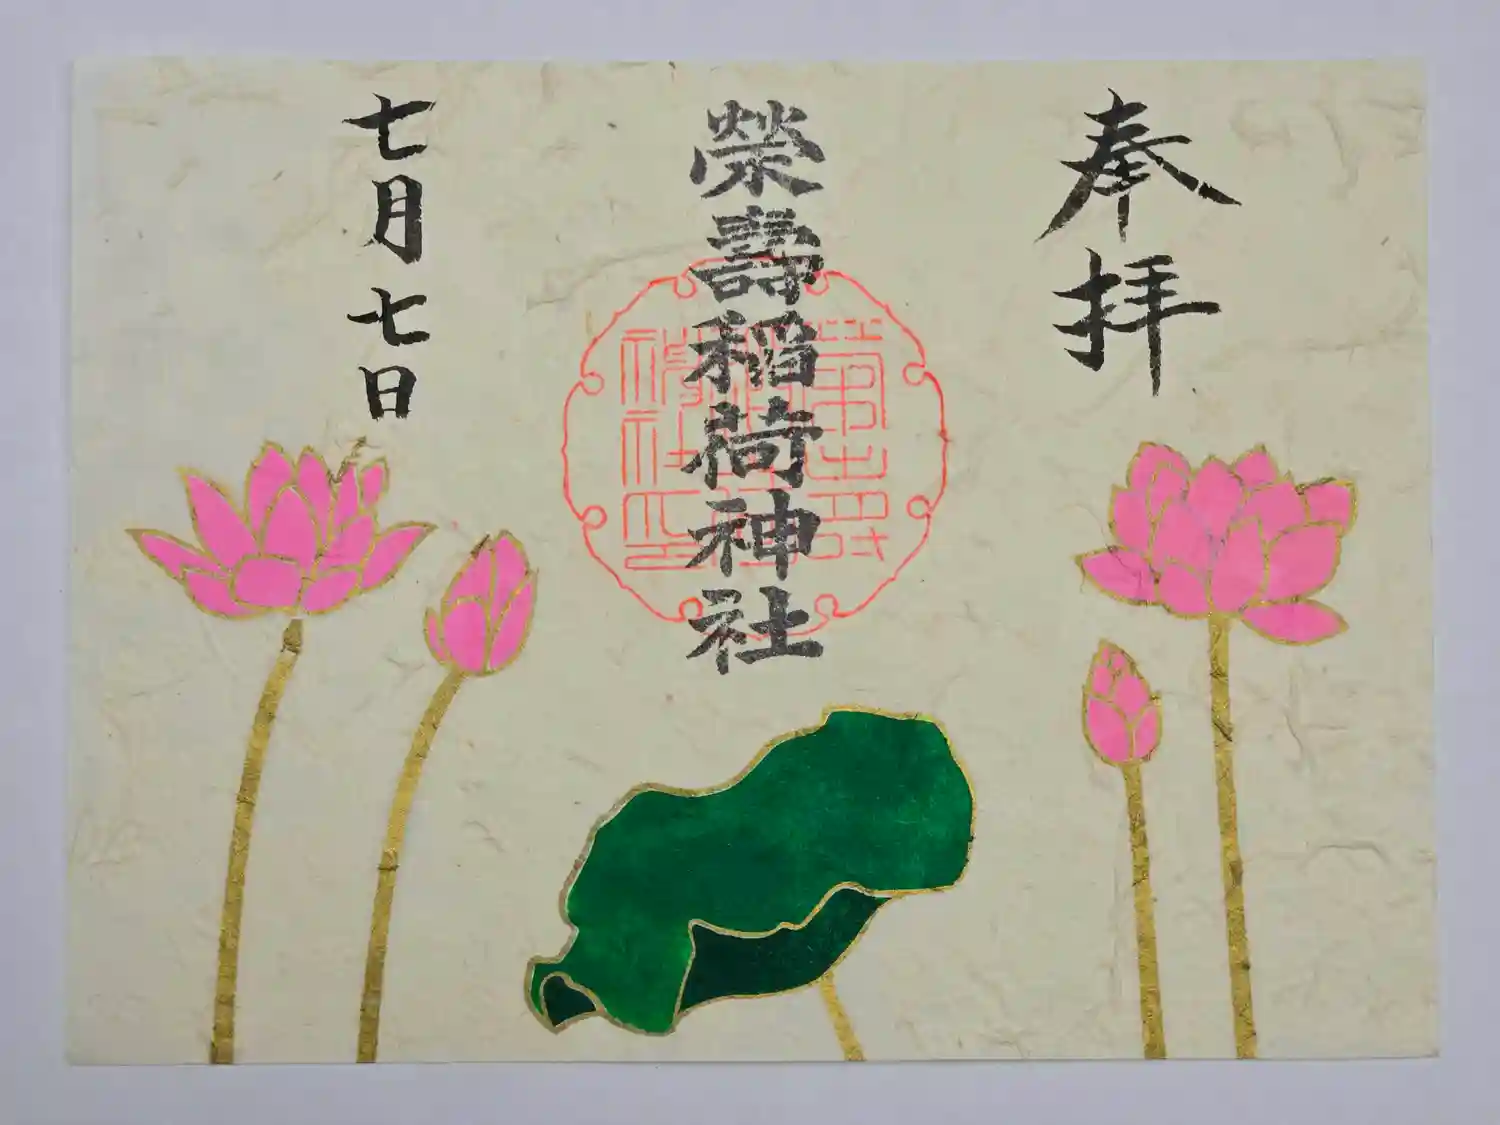 奉拝
榮壽稲荷神社
七月七日